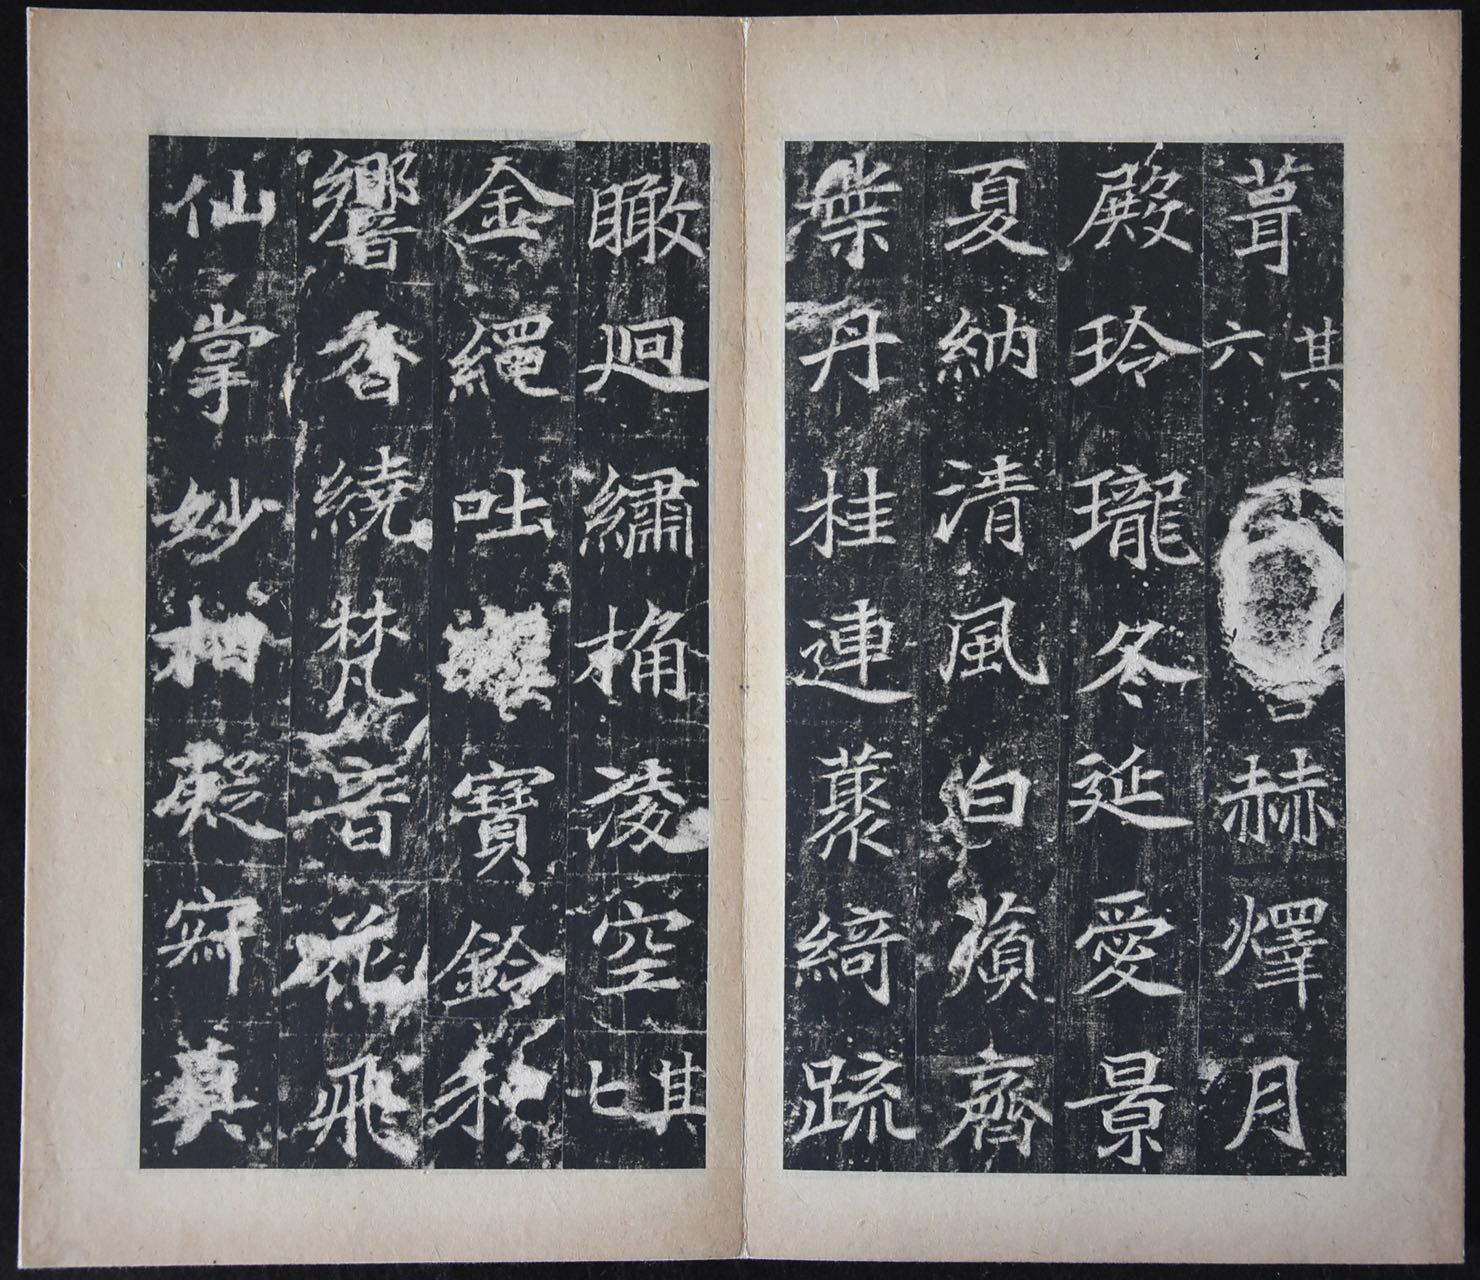 葺其六赫燡月
殿玲瓏冬延愛景
夏納清風白蘋齊
葉丹桂連藂綺疏
瞰迴繡桷淩空其七
金繩吐寶鈴
響香繞梵音花飛
仙掌妙相凝寂真